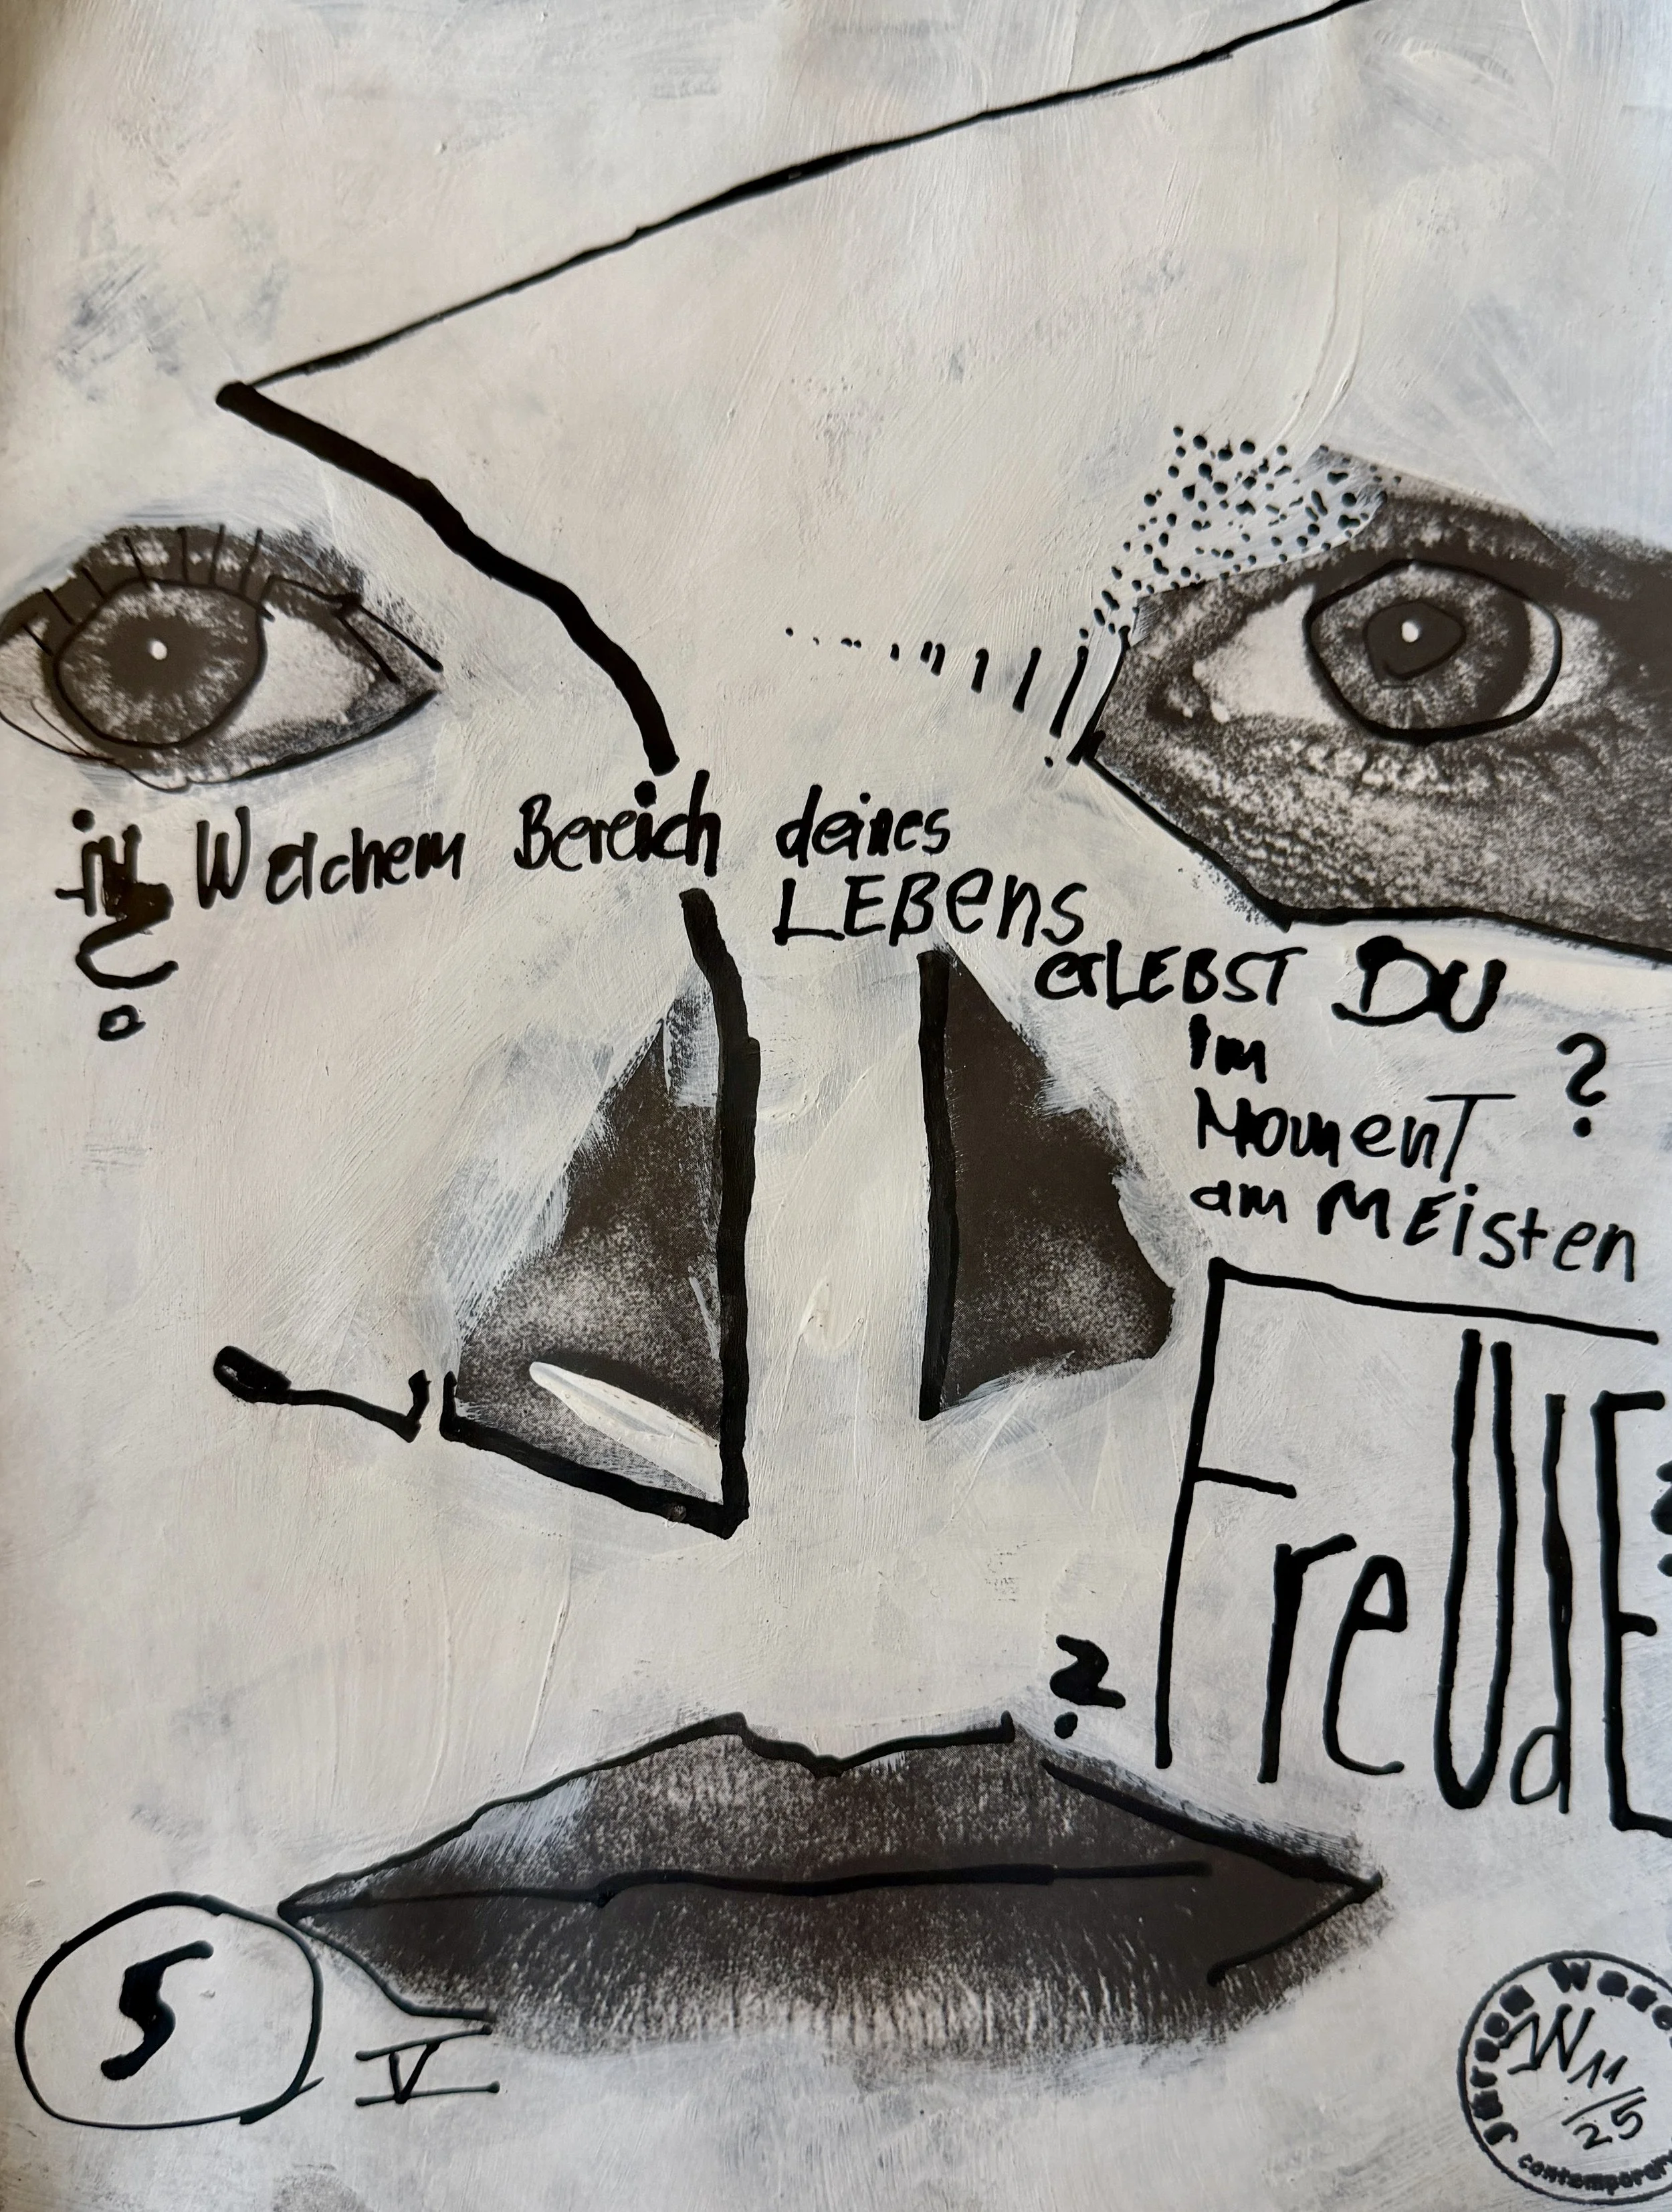 in Welchem Bereich deines
LEBens
erLEBST DU
im
MomenT ?
am MEisten
FreUdE
?
5
V
Jürgen
JW 11
/25